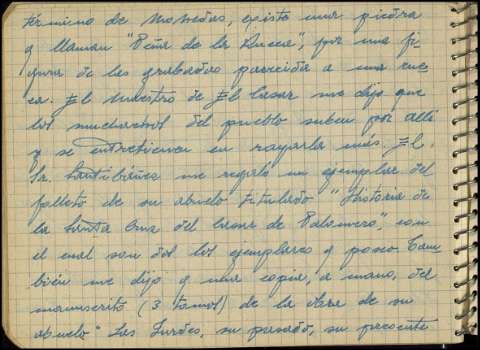 término de Moheda, existe una piedra
q llaman "Peña de la Rueca", por una fi-
gura de las grabadas parecida a una rue-
ca. El maestro de El Casar me dijo que
los muchachos del pueblo suben por allí
y se entretienen en rayarla más. El
Sr. Santibáñez me regaló un ejemplar del
folleto de su abuelo titulado "Historia de
la Santa Cruz del Casar de Palomero", con
el cual son dos los ejemplares q poseo. Tam-
bién me dijo q una copia, a mano, del
manuscrito (3 tomos) de la obra de su
abuelo "Las Jurdes, su pasado, su presente